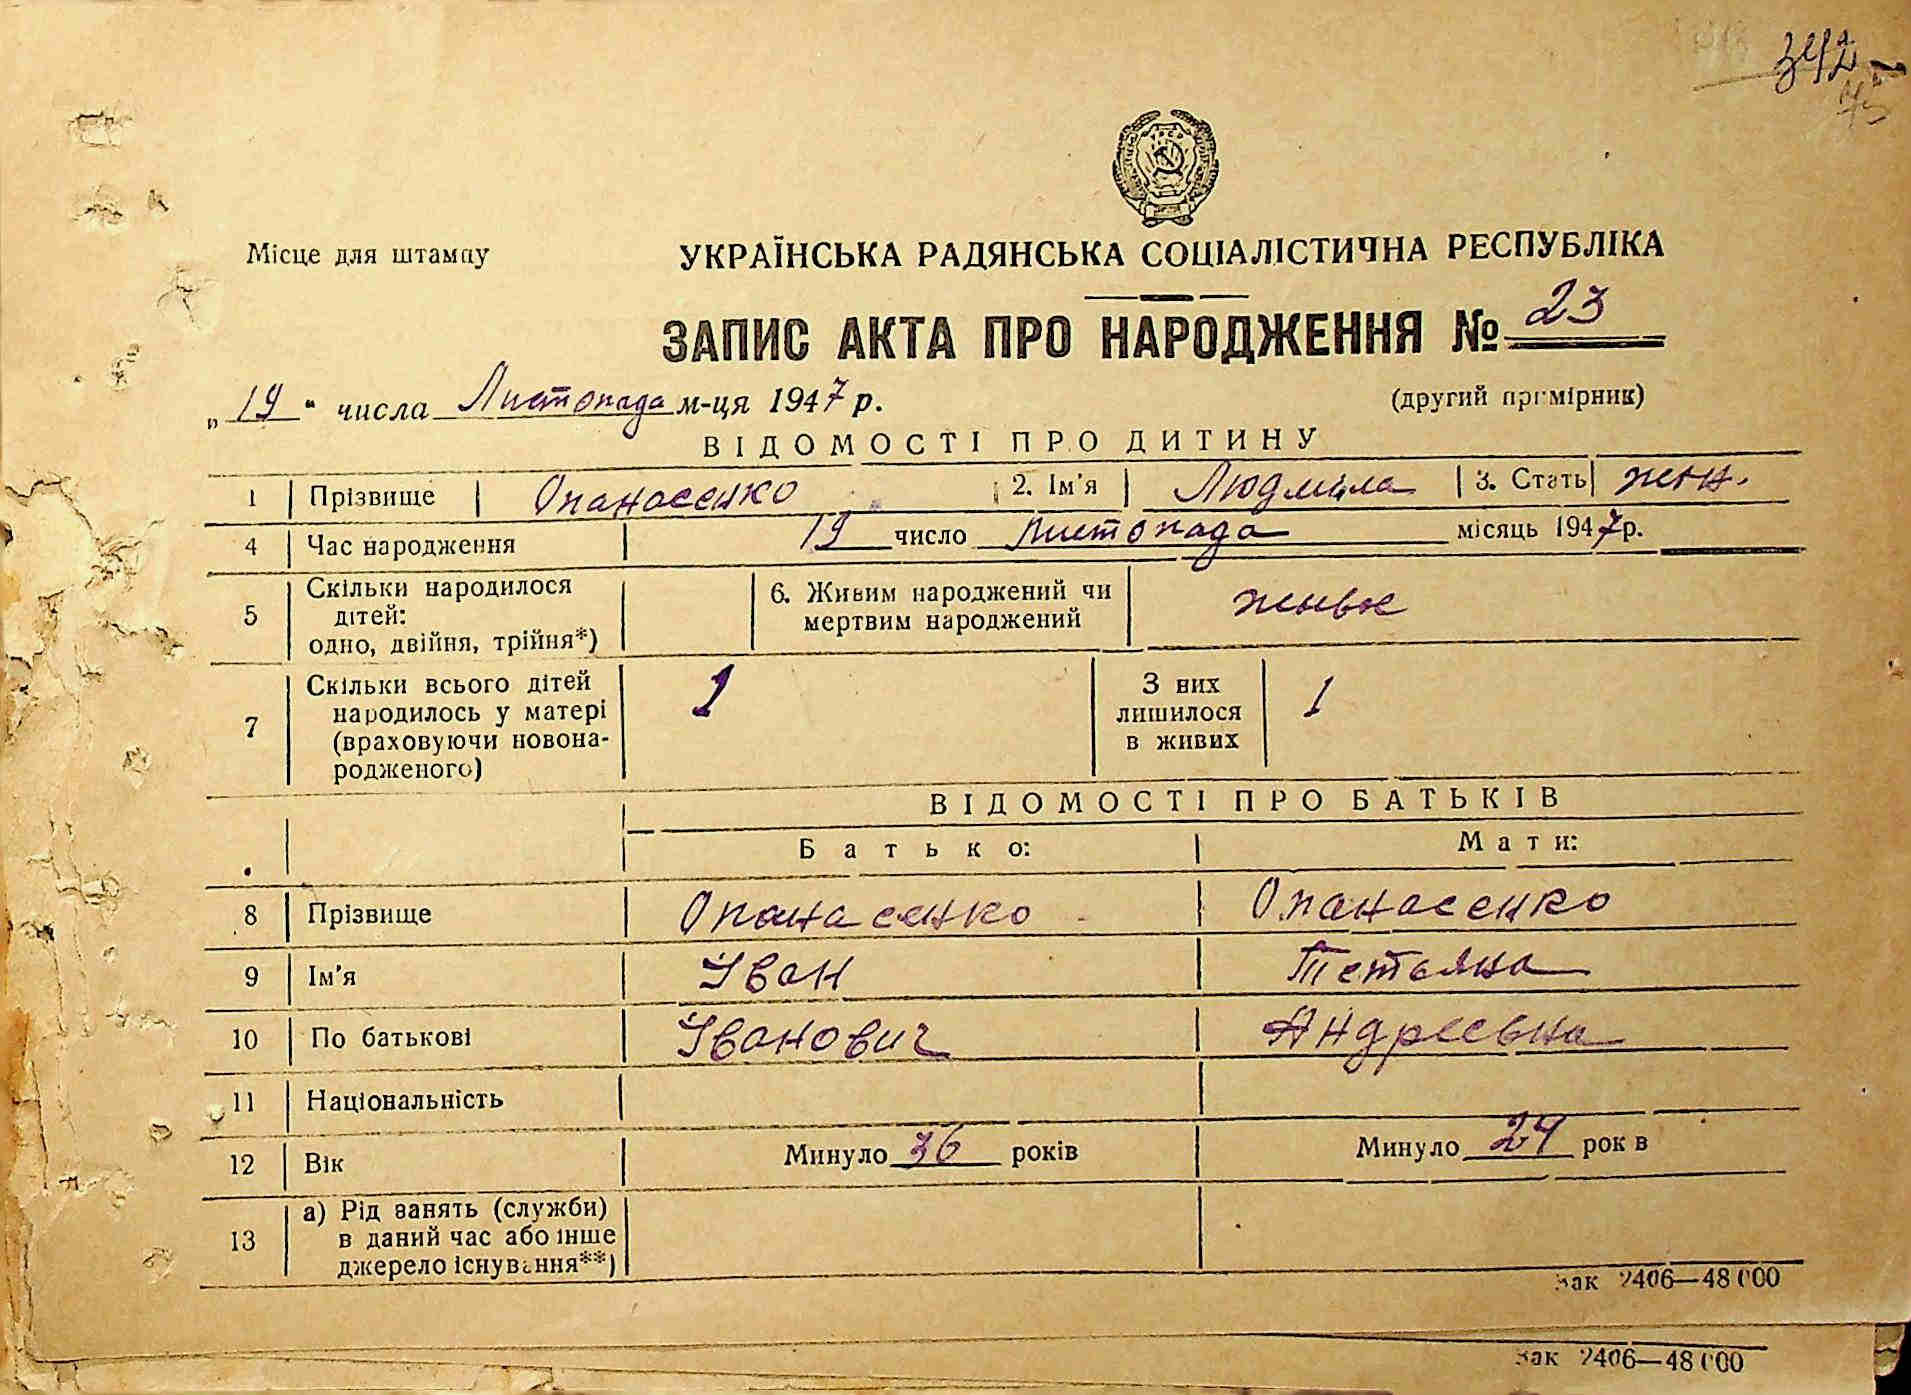 342
75
Місце для штампу
УКРАЇНСЬКА РАДЯНСЬКА СОЦІАЛІСТИЧНА РЕСПУБЛІКА
ЗАПИС АКТА ПРО НАРОДЖЕННЯ № 23
„19“ числа Листопада м-ця 1947 р.
(другий примірник)
ВІДОМОСТІ ПРО ДИТИНУ
1 Прізвище Опанасенко 2. Ім'я Людмила 3. Стать жін.
4 Час народження 19 число Листопада місяць 1947р.
5 Скільки народилося дітей: одно, двійня, трійня*) 6. Живим народжений чи мертвим народжений живе
7 Скільки всього дітей народилось у матері (враховуючи новонародженого) 1 З них лишилося в живих 1
ВІДОМОСТІ ПРО БАТЬКІВ
Батько: Мати:
8 Прізвище Опанасенко Опанасенко
9 Ім'я Іван Тетьяна
10 По батькові Іванович Андреевна
11 Національність
12 Вік Минуло 36 років Минуло 24 рок в
13 а) Рід занять (служби) в даний час або інше джерело існування**)
Зак 2406—48 000
Зак 2406—48 000